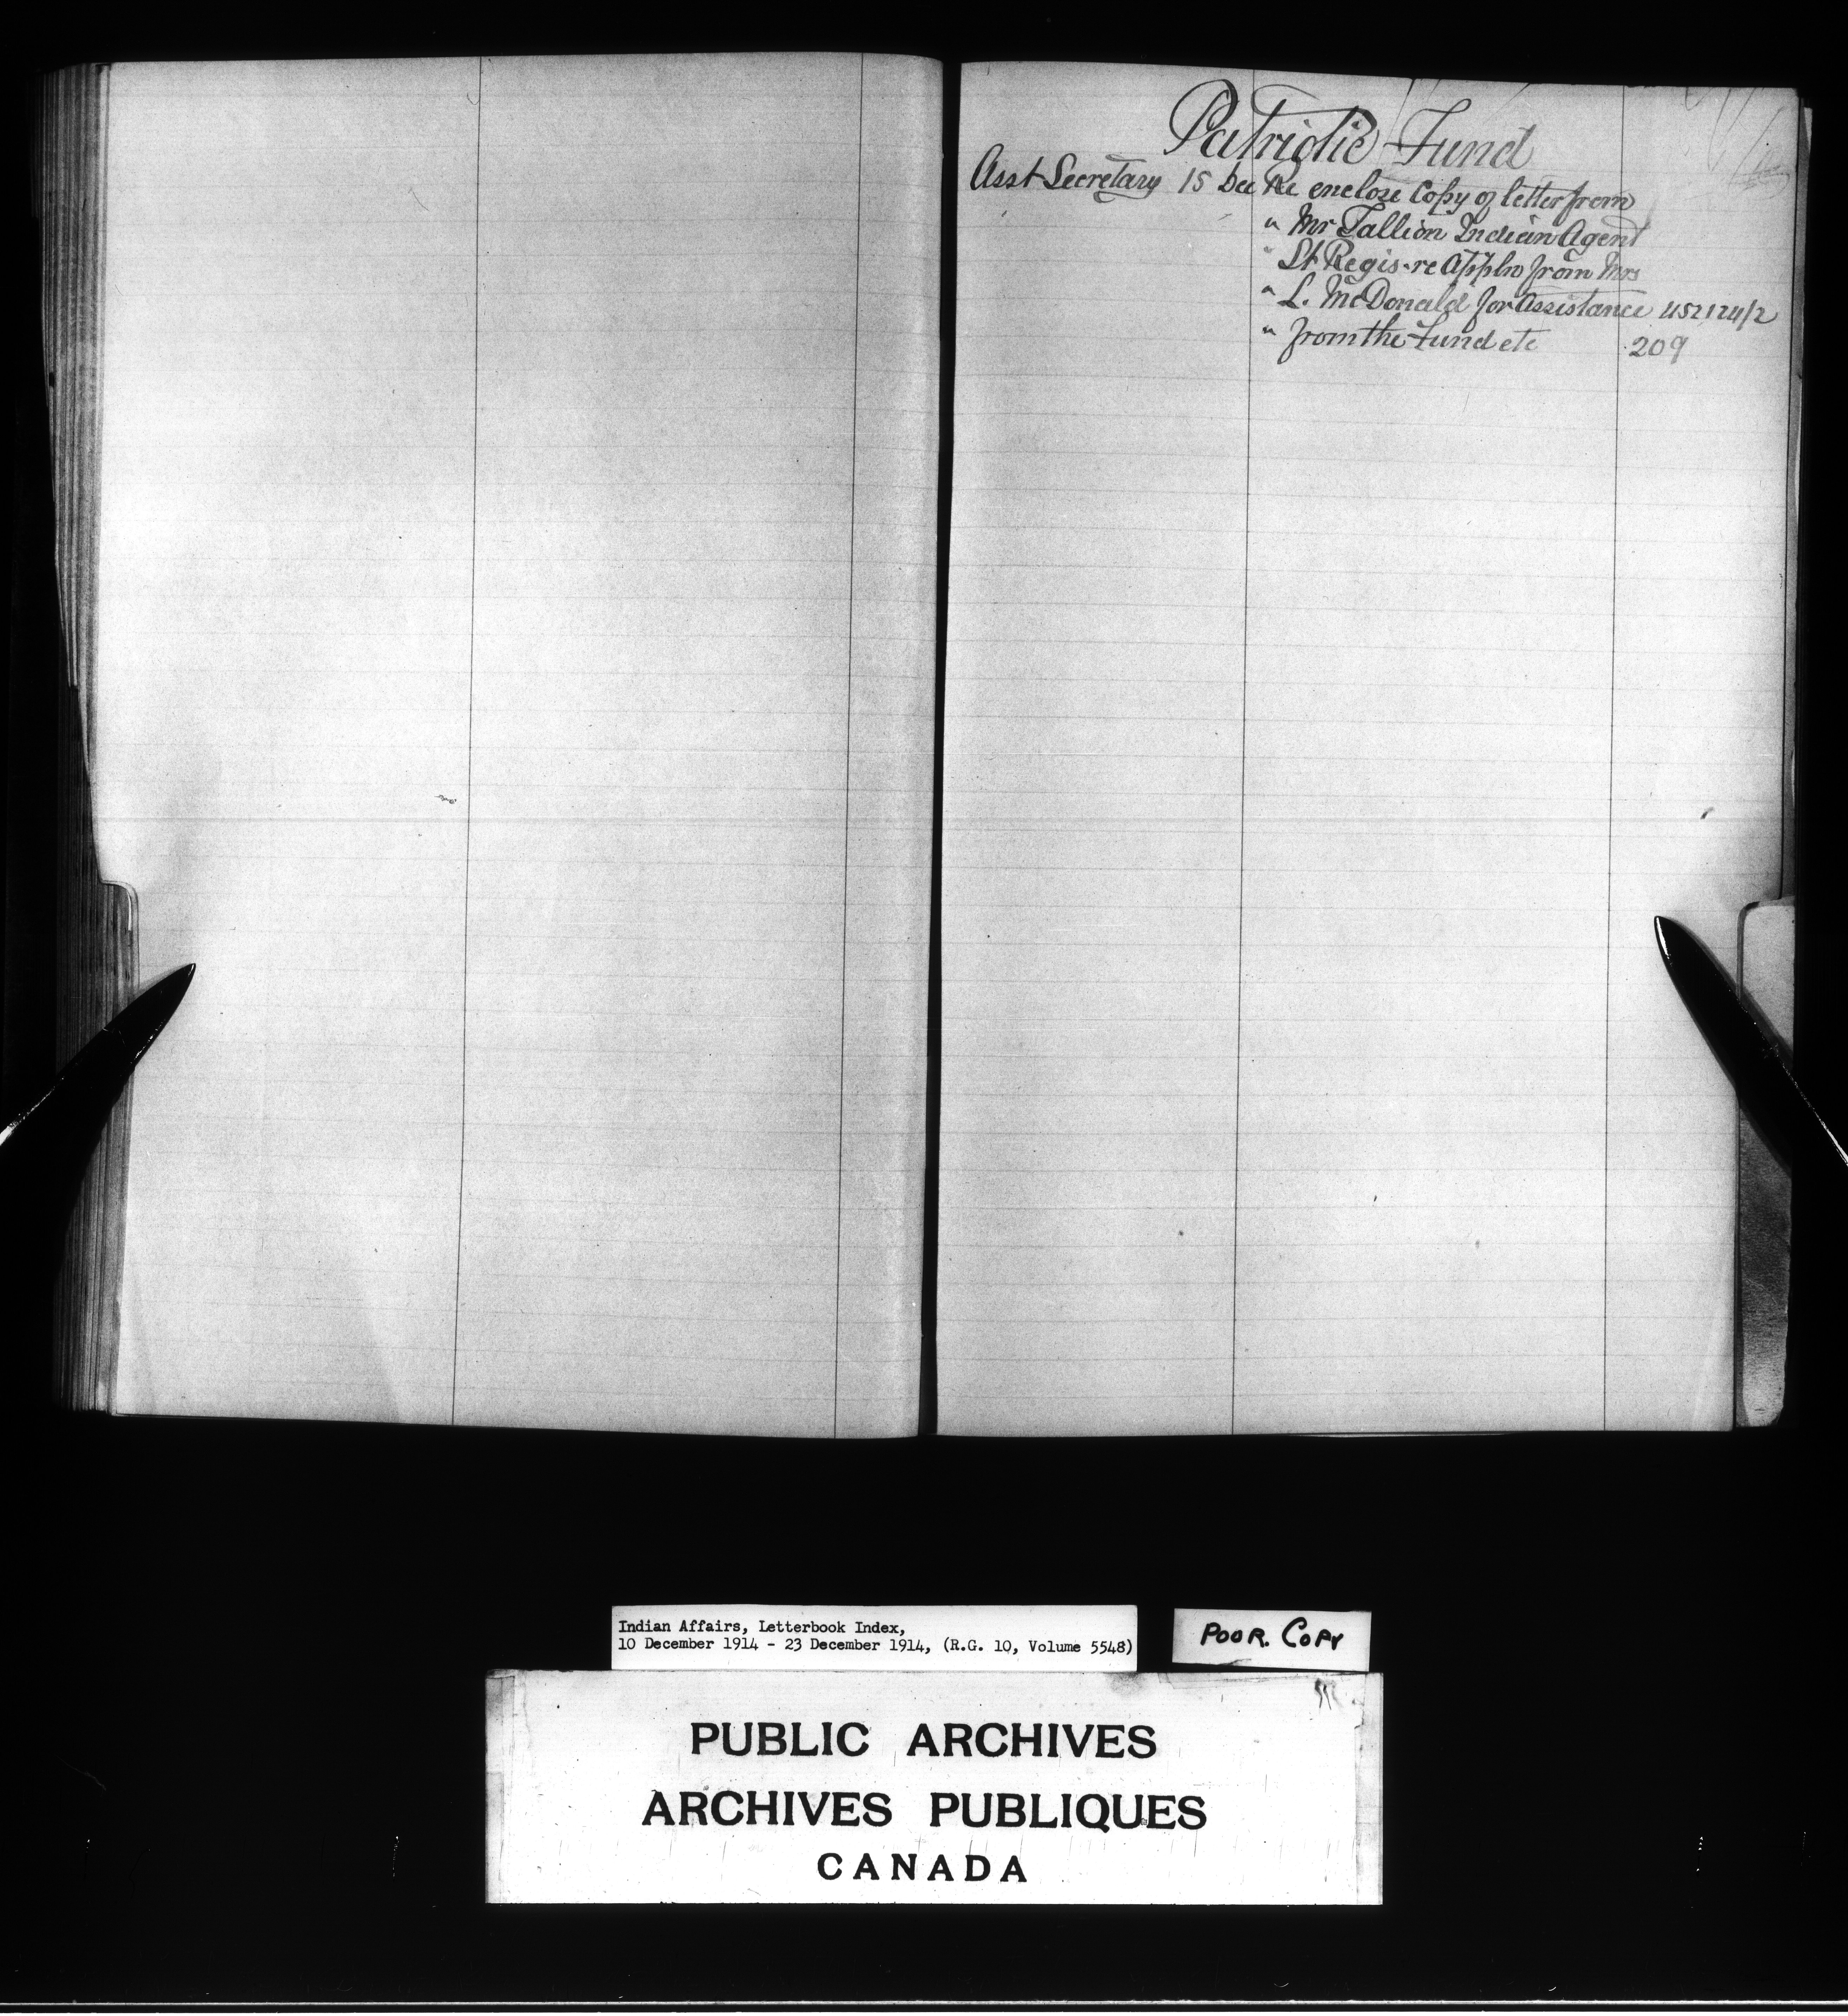 Patriotic Fund
Asst Secretary 15 Dec Re enclose Copy of letter from
" Mr Tallion Indian Agent
" St Regis - re Appln from Mrs
" L. McDonald for Assistance 452124/2
" from the Fund etc 209
Indian Affairs, Letterbook Index,
10 December 1914 - 23 December 1914, (R.G. 10, Volume 5548)
POOR. COPY
PUBLIC ARCHIVES
ARCHIVES PUBLIQUES
CANADA